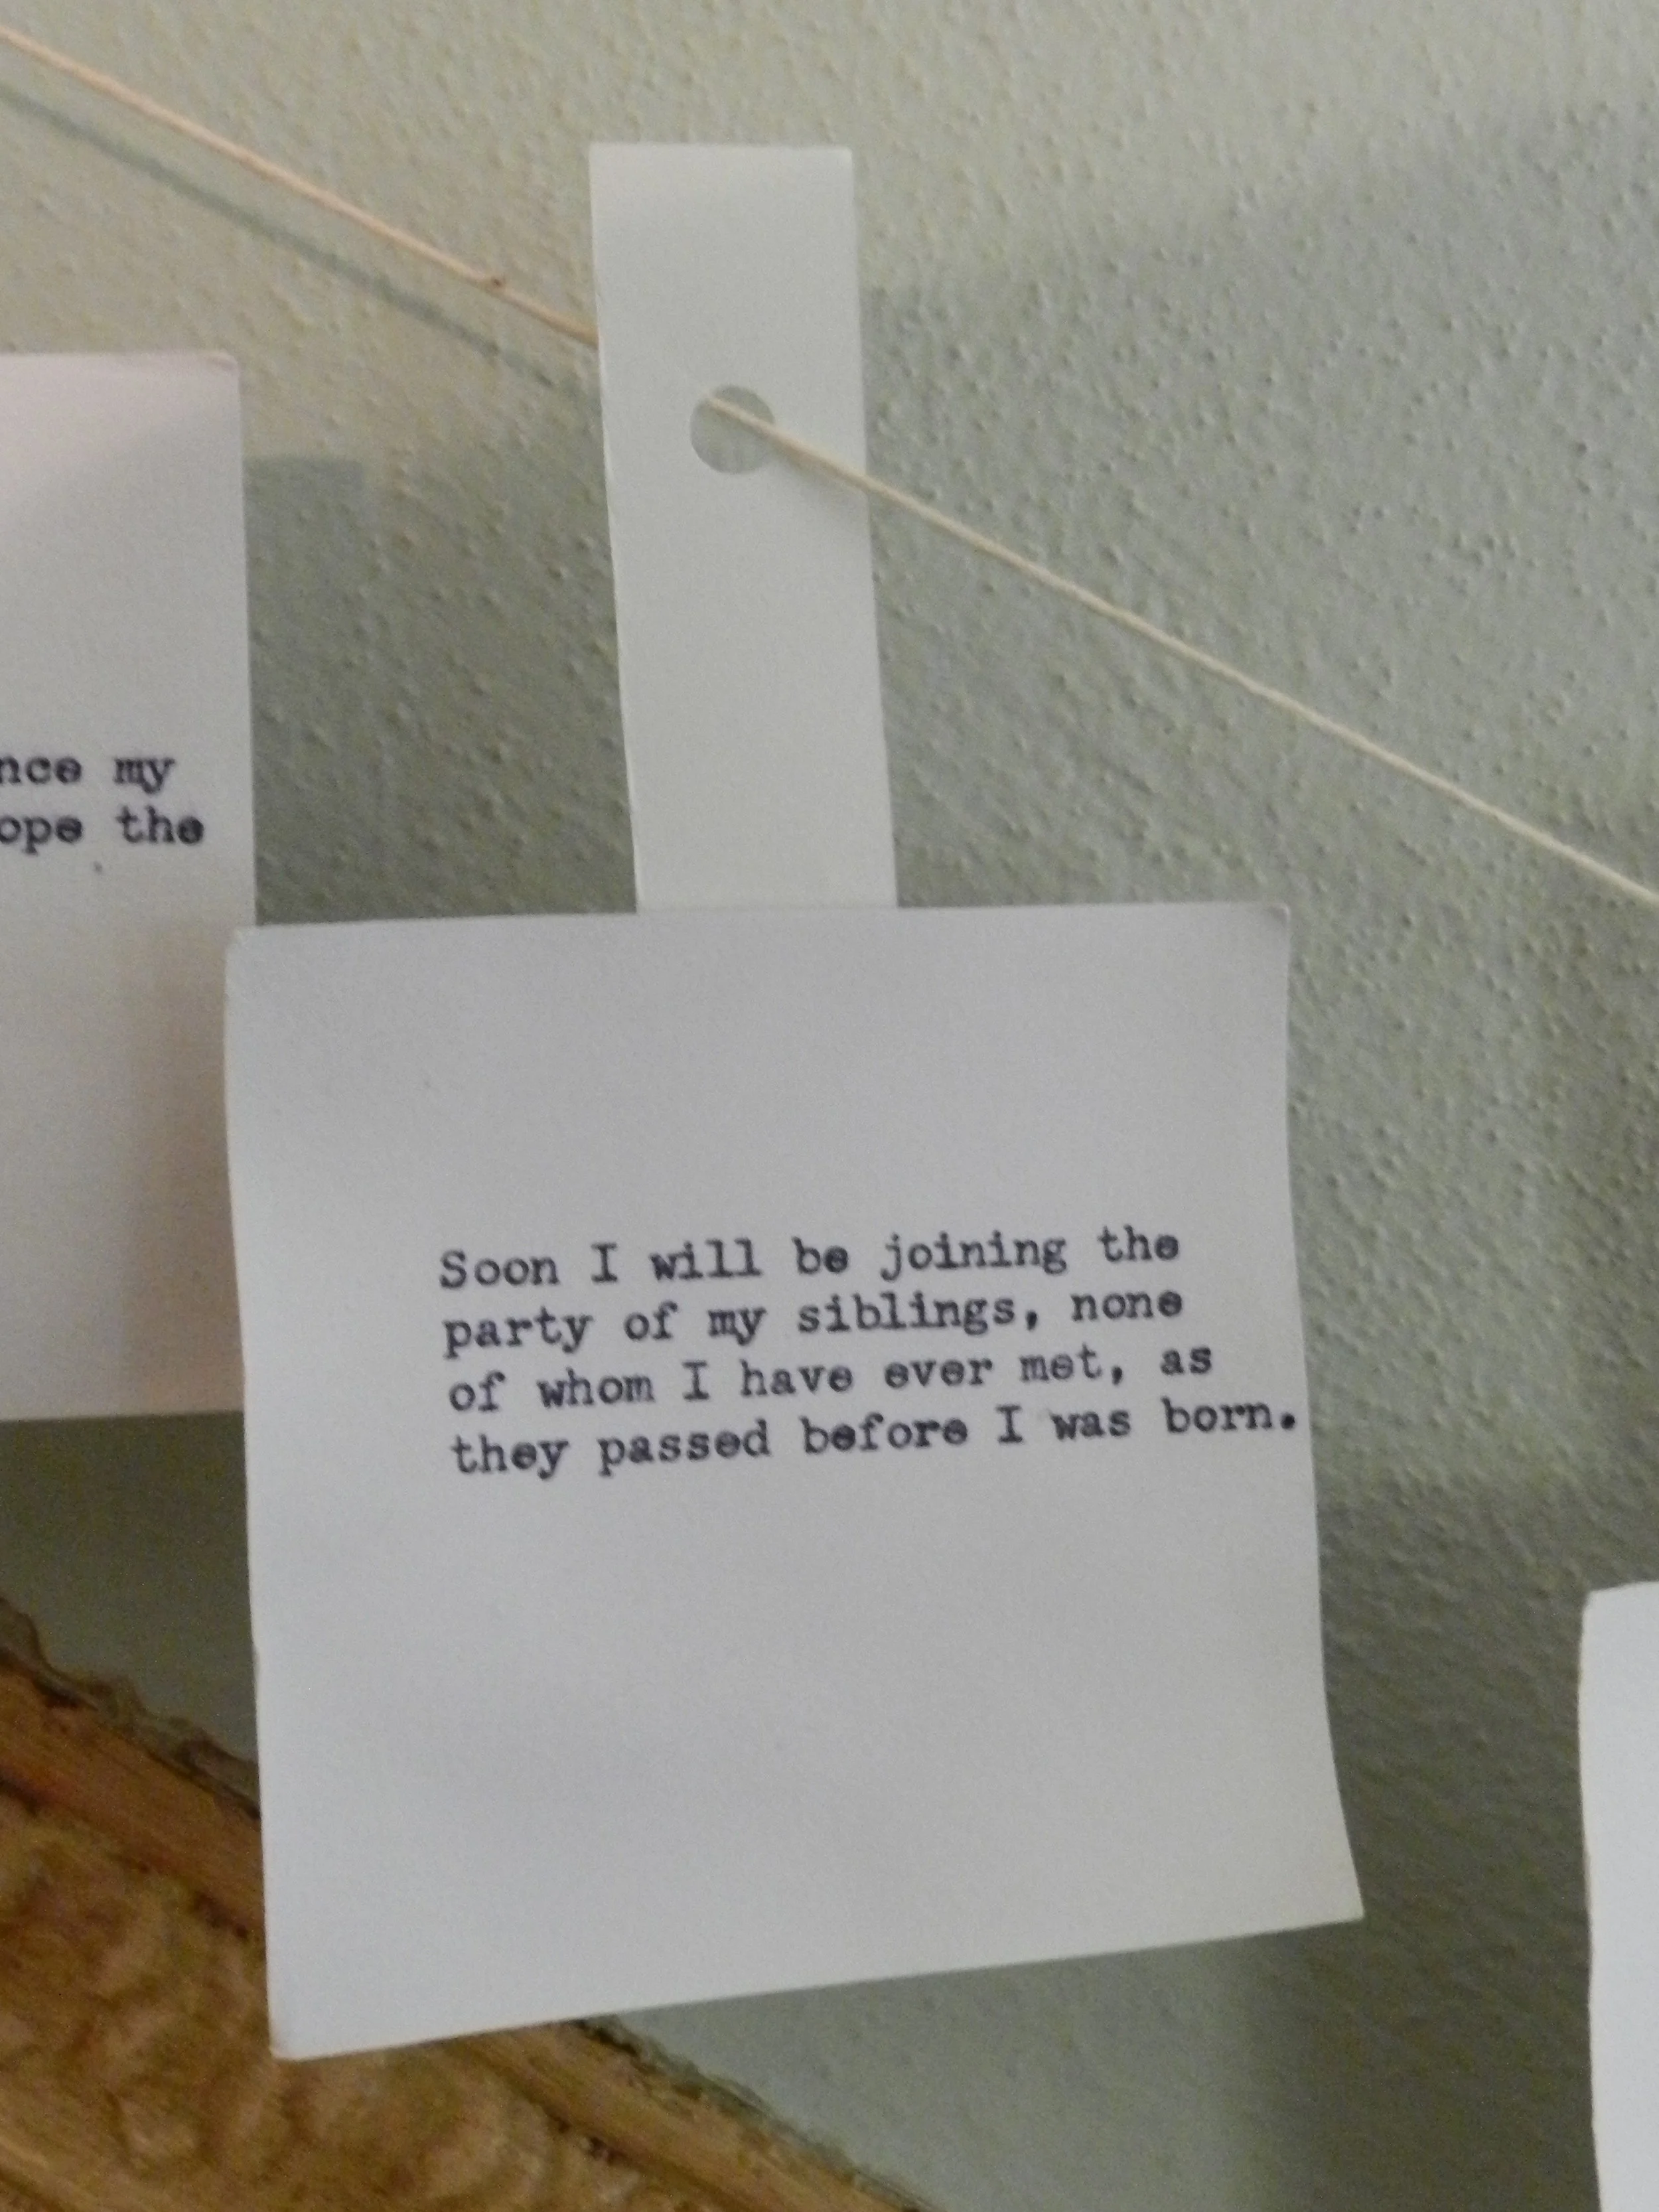 my
the
Soon I will be joining the
party of my siblings, none
of whom I have ever met, as
they passed before I was born.